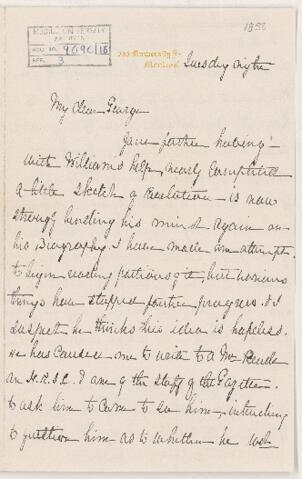 1898
McGILL UNIVERSITY
ARCHIVES
ACC. NO. 909C/16
REF. 3
University St.
Montreal
Tuesday night
My dear George
Your father having
with William's help, nearly completed
a little sketch & resolution - is now
strongly bending his mind again on
his Biography. I have made an attempt
to begin reading portions of it, but various
things have stopped further progress. & I
suspect he thinks his idea is hopeless.
He has caused me to write to a Mr
an of the staff of the Gazette
to ask him to come to see him, intending
to question him as to whether he